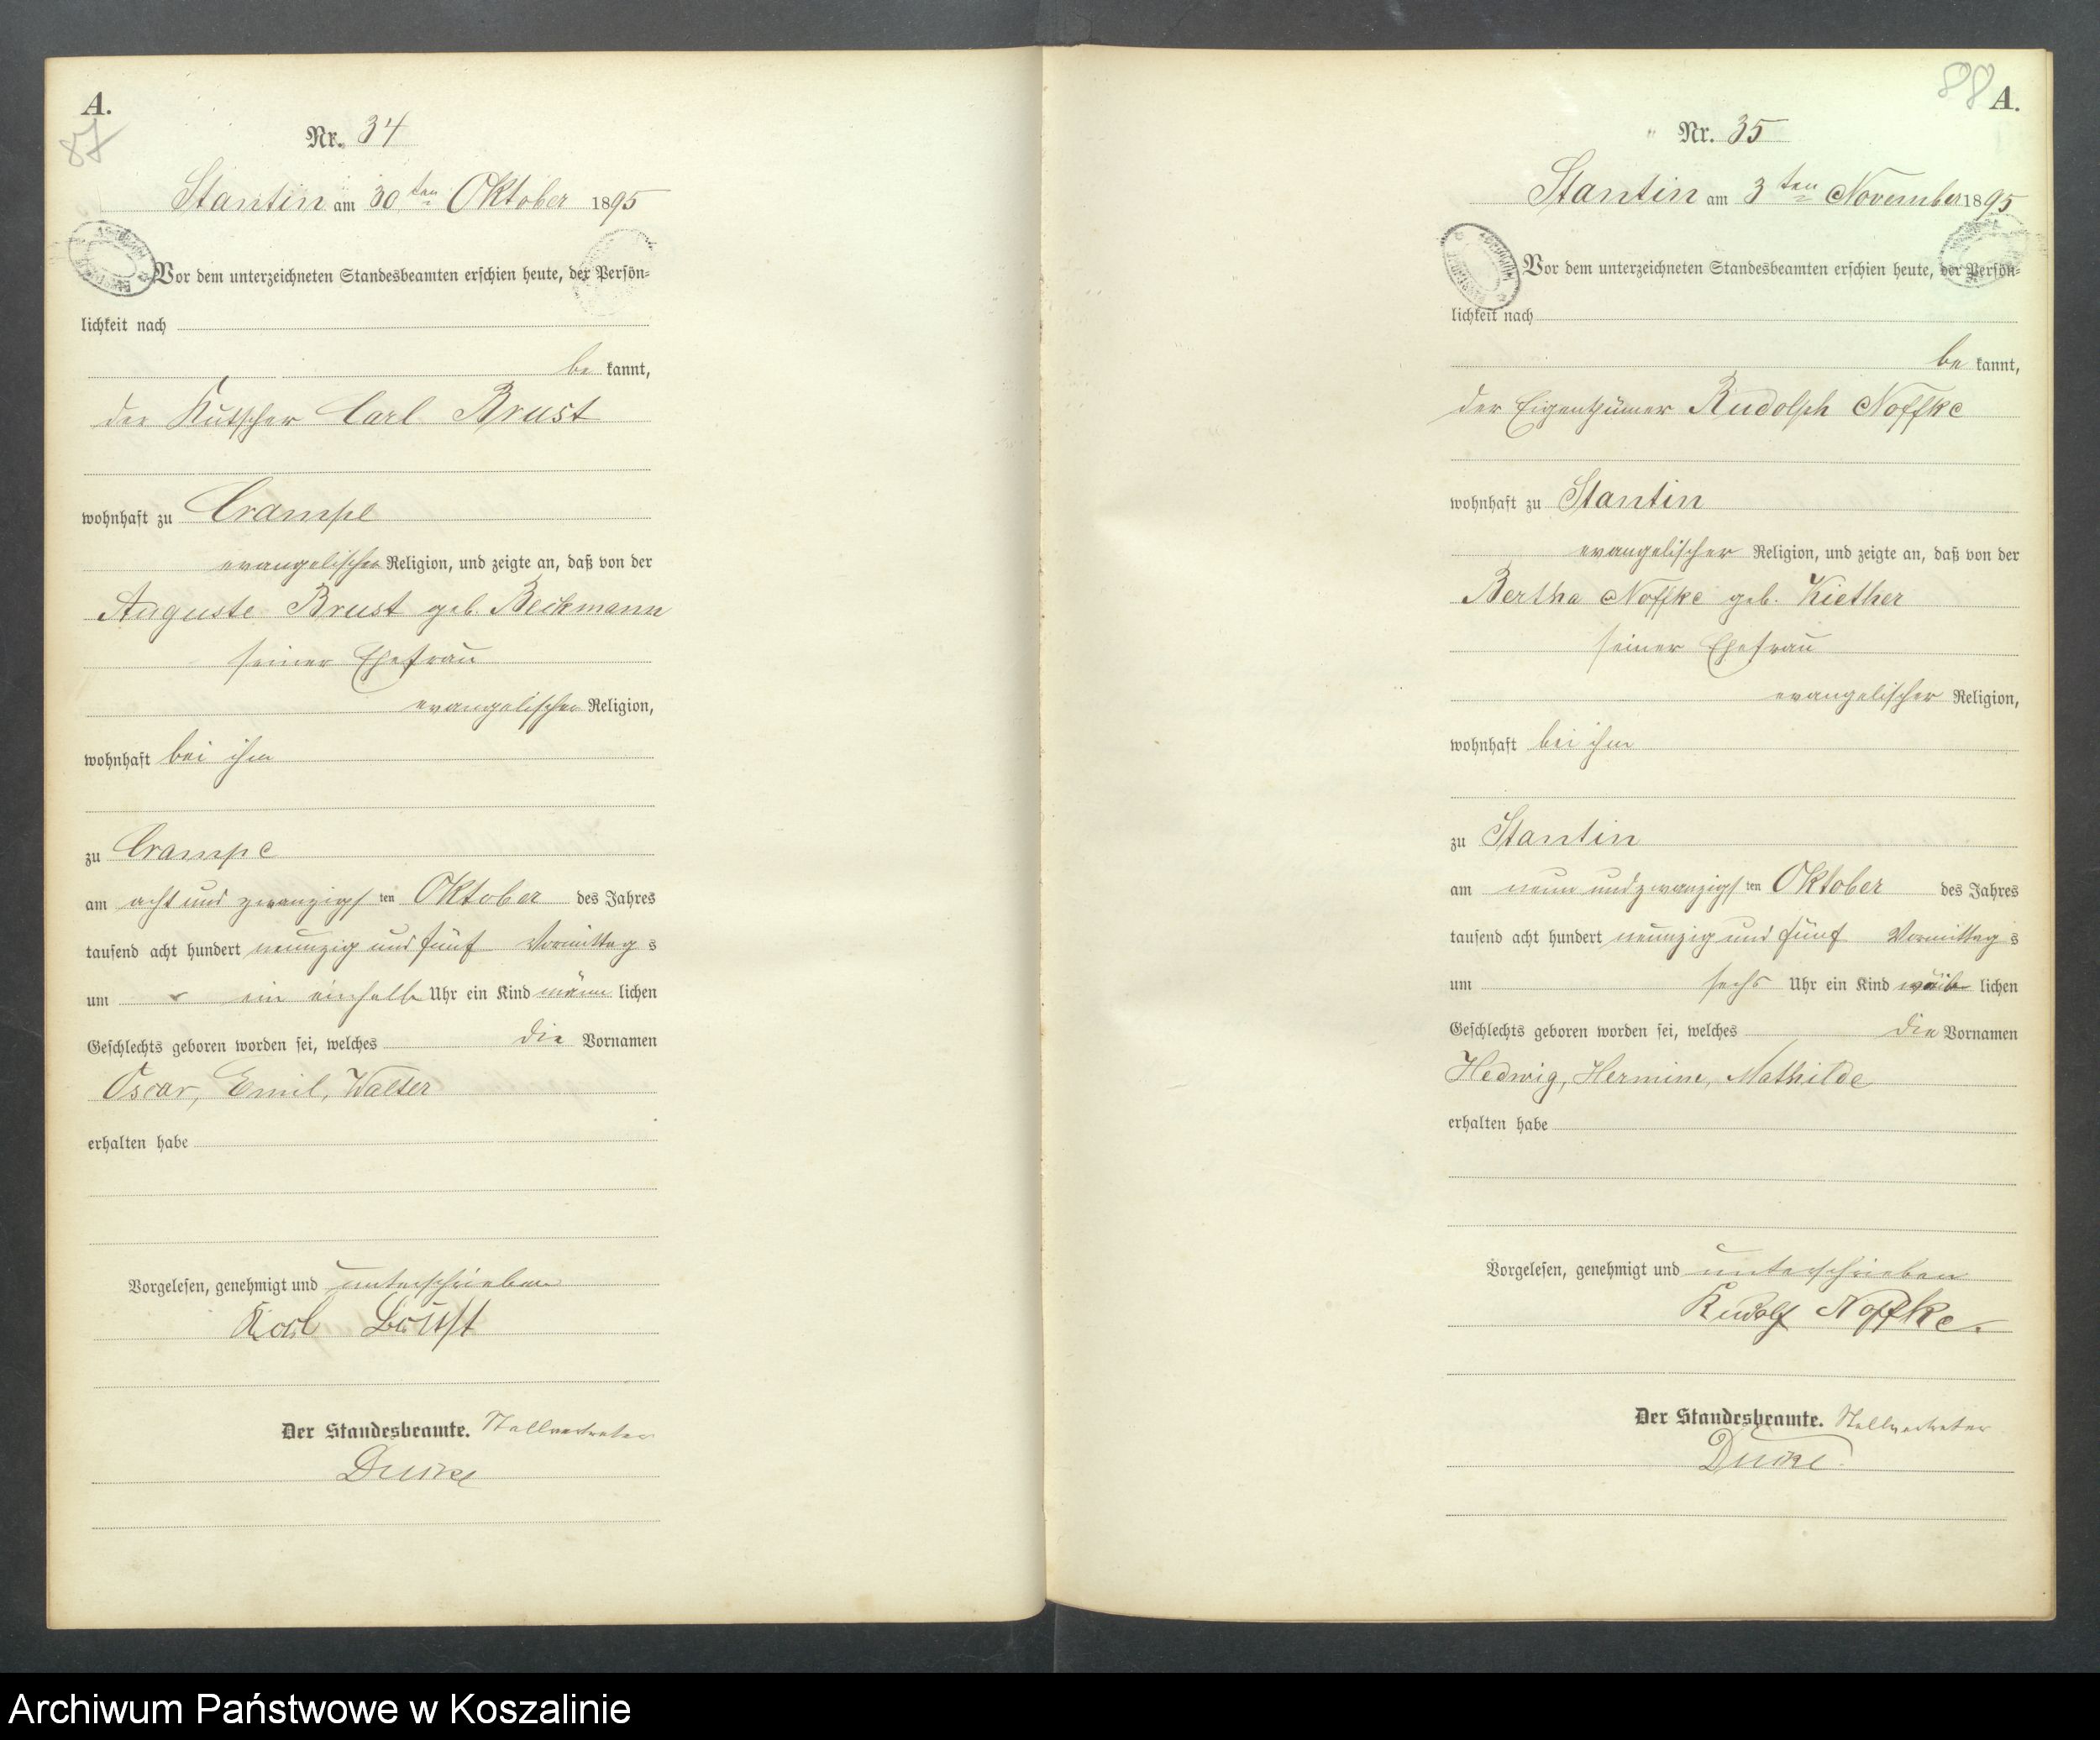 A.
87
Nr. 34
Stantin am 30ten Oktober 1895
Vor dem unterzeichneten Standesbeamten erschien heute, der Persön-
lichkeit nach
be kannt,
der Kutscher Carl Brust
wohnhaft zu Crampe
evangelischer Religion, und zeigte an, daß von der
Auguste Brust geb. Beckmann
seiner Ehefrau
evangelischer Religion,
wohnhaft bei ihm
zu Crampe
am acht und zwanzigs ten Oktober des Jahres
tausend acht hundert neunzig und fünf Vormittag s
um ein einhalb Uhr ein Kind männ lichen
Geschlechts geboren worden sei, welches die Vornamen
Oscar, Emil, Walter
erhalten habe
Vorgelesen, genehmigt und unterschrieben
Karl Brust
Der Standesbeamte. Stellvertreter
88 A.
Nr. 35
Stantin am 3ten November 1895
Vor dem unterzeichneten Standesbeamten erschien heute, der Persön-
lichkeit nach
be kannt,
der Eigenthümer Rudolph Noffke
wohnhaft zu Stantin
evangelischer Religion, und zeigte an, daß von der
Bertha Noffke geb. Kiether
seiner Ehefrau
evangelischer Religion,
wohnhaft bei ihm
zu Stantin
am neun und zwanzigs ten Oktober des Jahres
tausend acht hundert neunzig und fünf Vormittag s
um sechs Uhr ein Kind weib lichen
Geschlechts geboren worden sei, welches die Vornamen
Hedwig, Hermine, Mathilde
erhalten habe
Vorgelesen, genehmigt und unterschrieben
Rudolf Noffke.
Der Standesbeamte. Stellvertreter
Archiwum Państwowe w Koszalinie